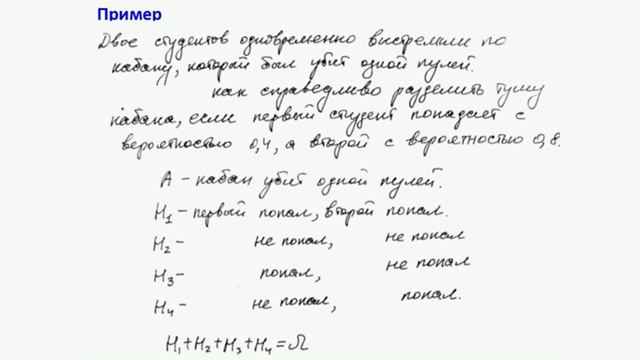 Пример
Двое студентов одновременно выстрелили по
кабану, который был убит одной пулей.
как справедливо разделить тушу
кабана, если первый студент попадает с
вероятностью 0,4, а второй с вероятностью 0,8.
A - кабан убит одной пулей.
H₁ - первый попал, второй попал.
H₂ - не попал, не попал
H₃ - попал, не попал
H₄ - не попал, попал.
H₁+H₂+H₃+H₄=Ω